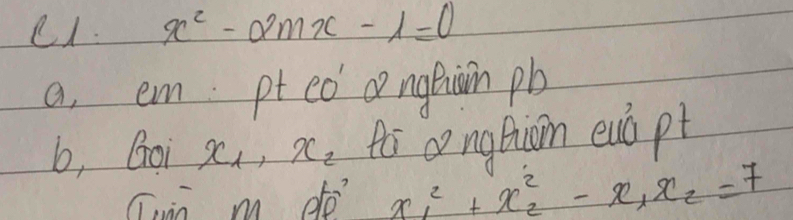 C1: x² - 2mx - 1 = 0
a, cm : pt có 2 nghiệm pb
b, Gọi x₁, x₂ là 2 nghiệm của pt
Tìm m để x₁² + x₂² - x₁x₂ = 7